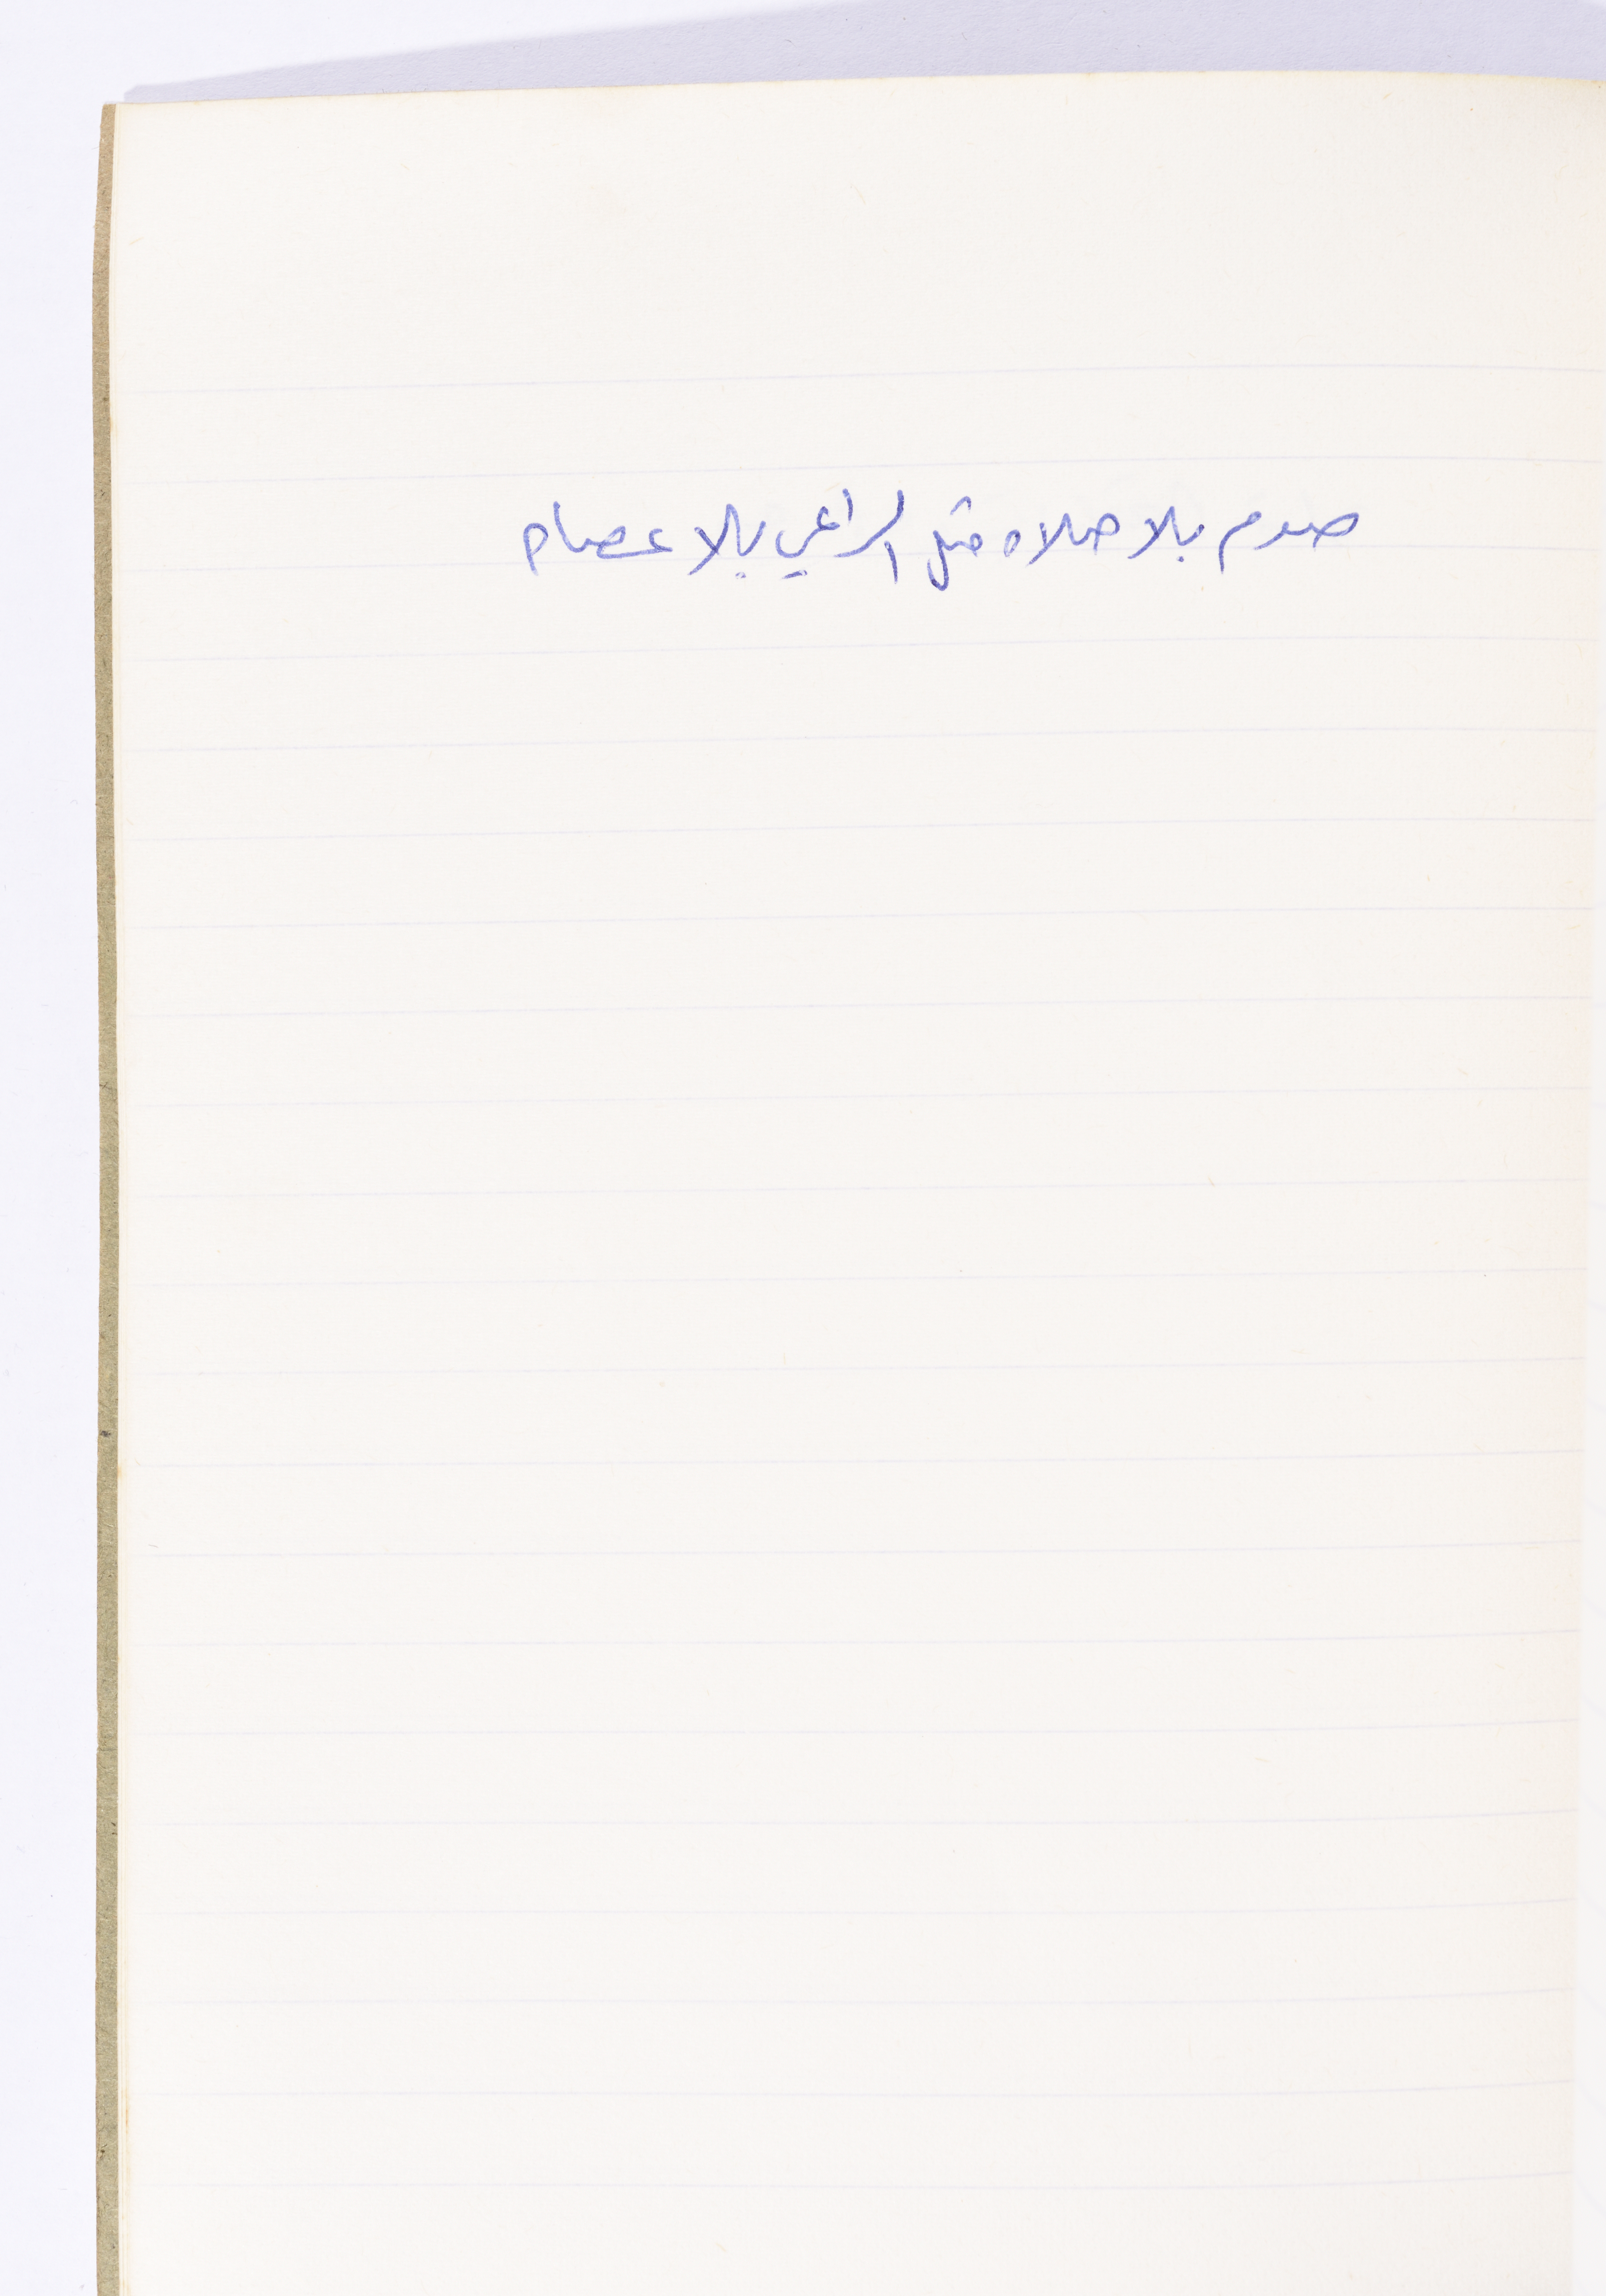 صوم بلا صلاه مثل الراعي بلا عصاه